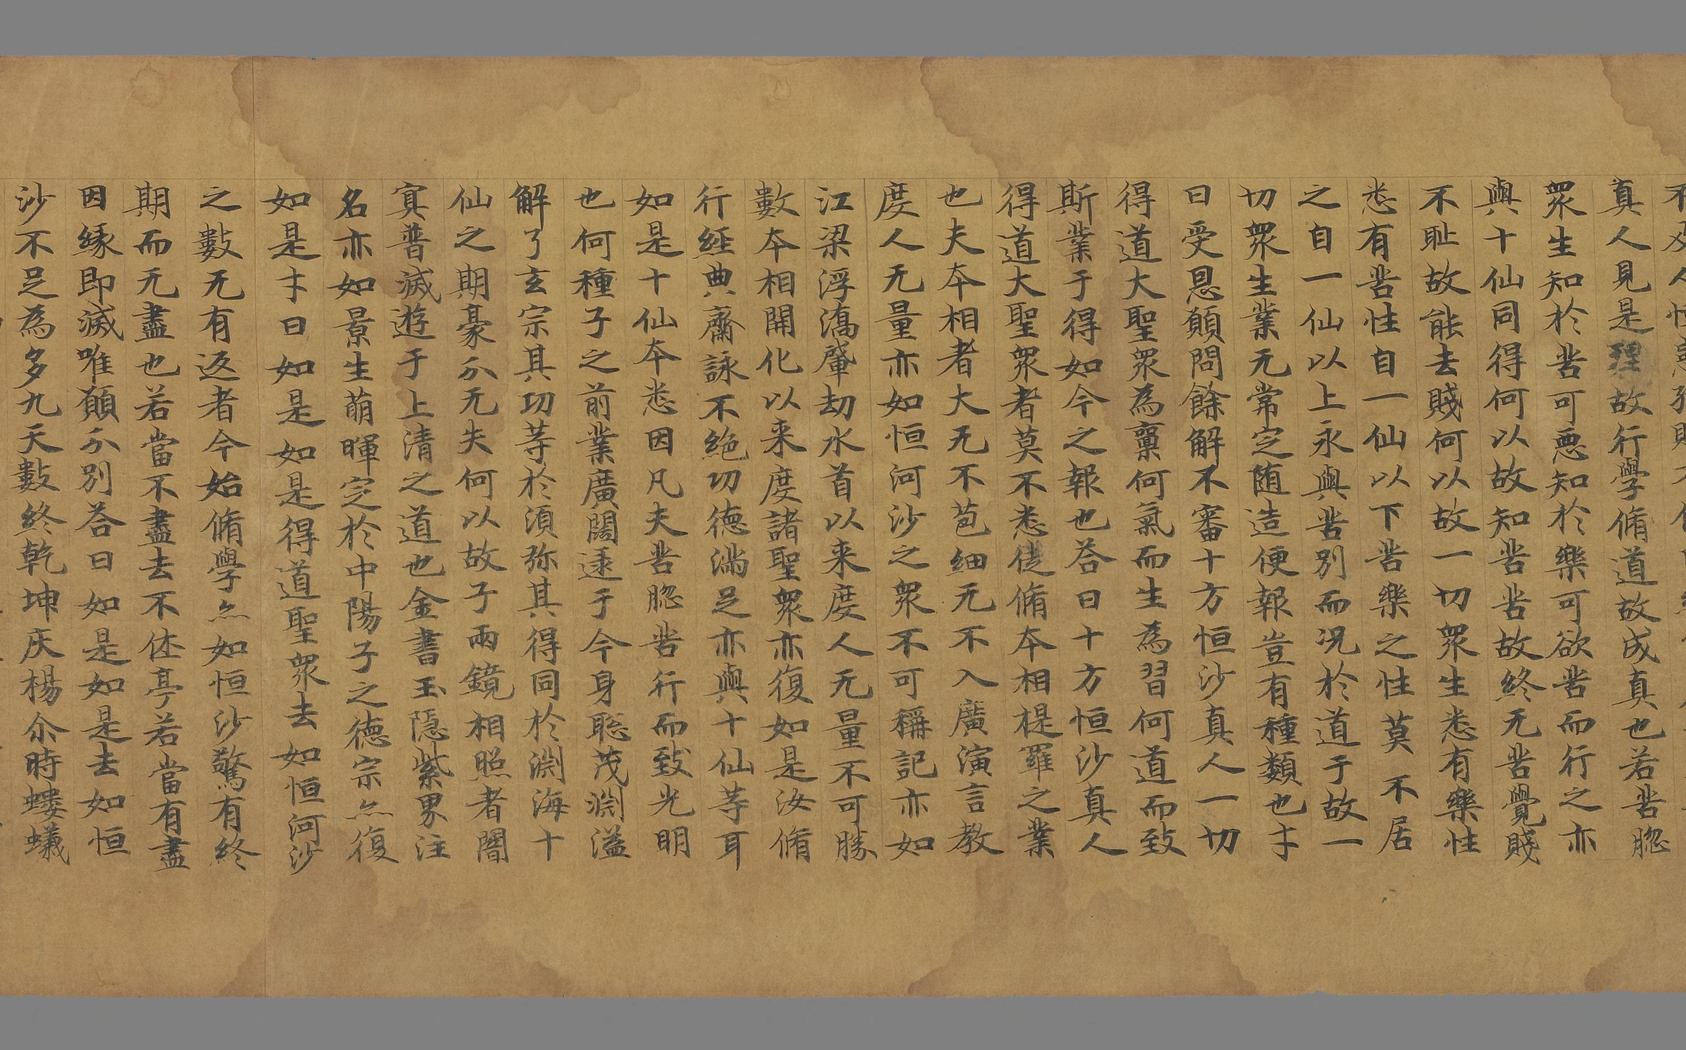 真人見是理故行學脩道故成真也若苦膇
眾生知於苦可惡知於樂可欲苦而行之亦
與十仙同得何以故知苦苦故終无苦覺賤
不恥故能去賤何以故一切眾生悉有樂性
悉有苦性自一仙以下苦樂之性莫不居
之自一仙以上永與苦別而况於道于故一
切眾生業无常定随造便報豈有種類也㐧
曰受恩願問餘解不審十方恒沙真人一切
得道大聖眾為稟何氣而生為習何道而致
斯業于得如今之報也荅曰十方恒沙真人
得道大聖眾者莫不悉從脩夲相榥羅之業
也夫夲相者大无不苞細无不入廣演言教
度人无量亦如恒河沙之眾不可稱記亦如
江梁浮㵎肇劫水首以来度人无量不可勝
數夲相開化以来度諸聖眾亦復如是汝脩
行經典齋詠不絕功德滿足亦與十仙等耳
如是十仙夲悉因凡夫苦膇苦行而致光明
也何種子之前業廣闊逮于今身聡茂渊溢
解了玄宗其功等於湏弥其得同於渊海十
仙之期豪尒无失何以故子兩鏡相照者闇
寘普滅遊于上清之道也金書玉隱紫界注
名亦如景生萠暉定於中陽子之德宗亦復
如是㐧曰如是如是得道聖眾去如恒河沙
之數无有返者今始脩學亦如恒沙驚有終
期而无盡也若當不盡去不㑅亭若當有盡
因緣即滅唯願尒別荅曰如是如是去如恒
沙不足為多九天數終乾坤灰楊尒時螻蟻